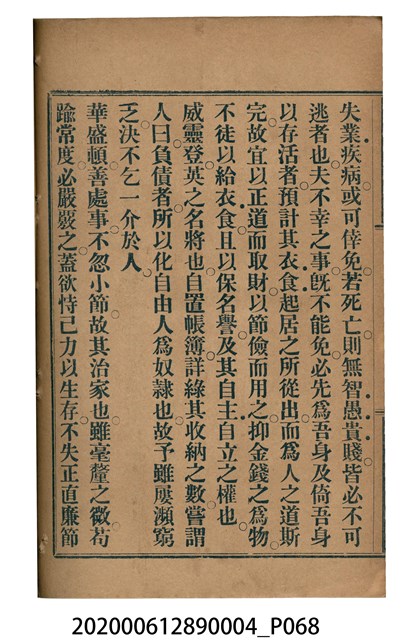 失業疾病或可倖免若死亡則無智愚貴賤皆必不可
逃者也夫不幸之事既不能免必先爲吾身及倚吾身
以存活者預計其衣食起居之所從出而爲人之道斯
完故宜以正道而取財以節儉而用之抑金錢之爲物
不徒以給衣食且以保名譽及其自主自立之權也
威靈登英之名將也自置帳簿詳錄其收納之數嘗謂
人曰負債者所以化自由人爲奴隷也故予雖屢瀕窮
乏決不乞一介於人
華盛頓善處事不忽小節故其治家也雖毫釐之微苟
踰常度必嚴覈之蓋欲恃己力以生存不失正直廉節
202000612890004_P068